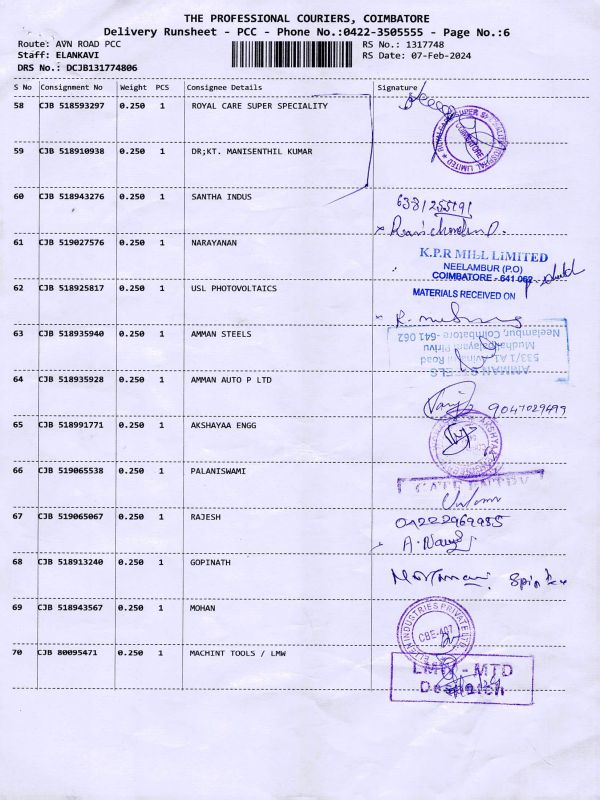 THE PROFESSIONAL COURIERS, COIMBATORE
Delivery Runsheet - PCC - Phone No.:0422-3505555 - Page No.:6
Route: AVN ROAD PCC
RS No.: 1317748
Staff: ELANKAVI
RS Date: 07-Feb-2024
DRS No.: DCJB131774806
S No Consignment No Weight PCS Consignee Details Signature
58 CJB 518593297 0.250 1 ROYAL CARE SUPER SPECIALITY
COIMBATORE
59 CJB 518910938 0.250 1 DR;KT. MANISENTHIL KUMAR
60 CJB 518943276 0.250 1 SANTHA INDUS
6381255191
61 CJB 519027576 0.250 1 NARAYANAN
K.P.R MILL LIMITED
NEELAMBUR (P.O)
COIMBATORE - 641 062
62 CJB 518925817 0.250 1 USL PHOTOVOLTAICS
MATERIALS RECEIVED ON
63 CJB 518935940 0.250 1 AMMAN STEELS
AMMAN STEELS
Neelambur, Coimbatore - 641 062
64 CJB 518935928 0.250 1 AMMAN AUTO P LTD
9047029499
65 CJB 518991771 0.250 1 AKSHAYAA ENGG
66 CJB 519065538 0.250 1 PALANISWAMI
67 CJB 519065067 0.250 1 RAJESH
04222969985
68 CJB 518913240 0.250 1 GOPINATH
69 CJB 518943567 0.250 1 MOHAN
INDUSTRIES PRIVATE LTD
CBE-407
70 CJB 80095471 0.250 1 MACHINT TOOLS / LMW
LMW - MTD
Despatch